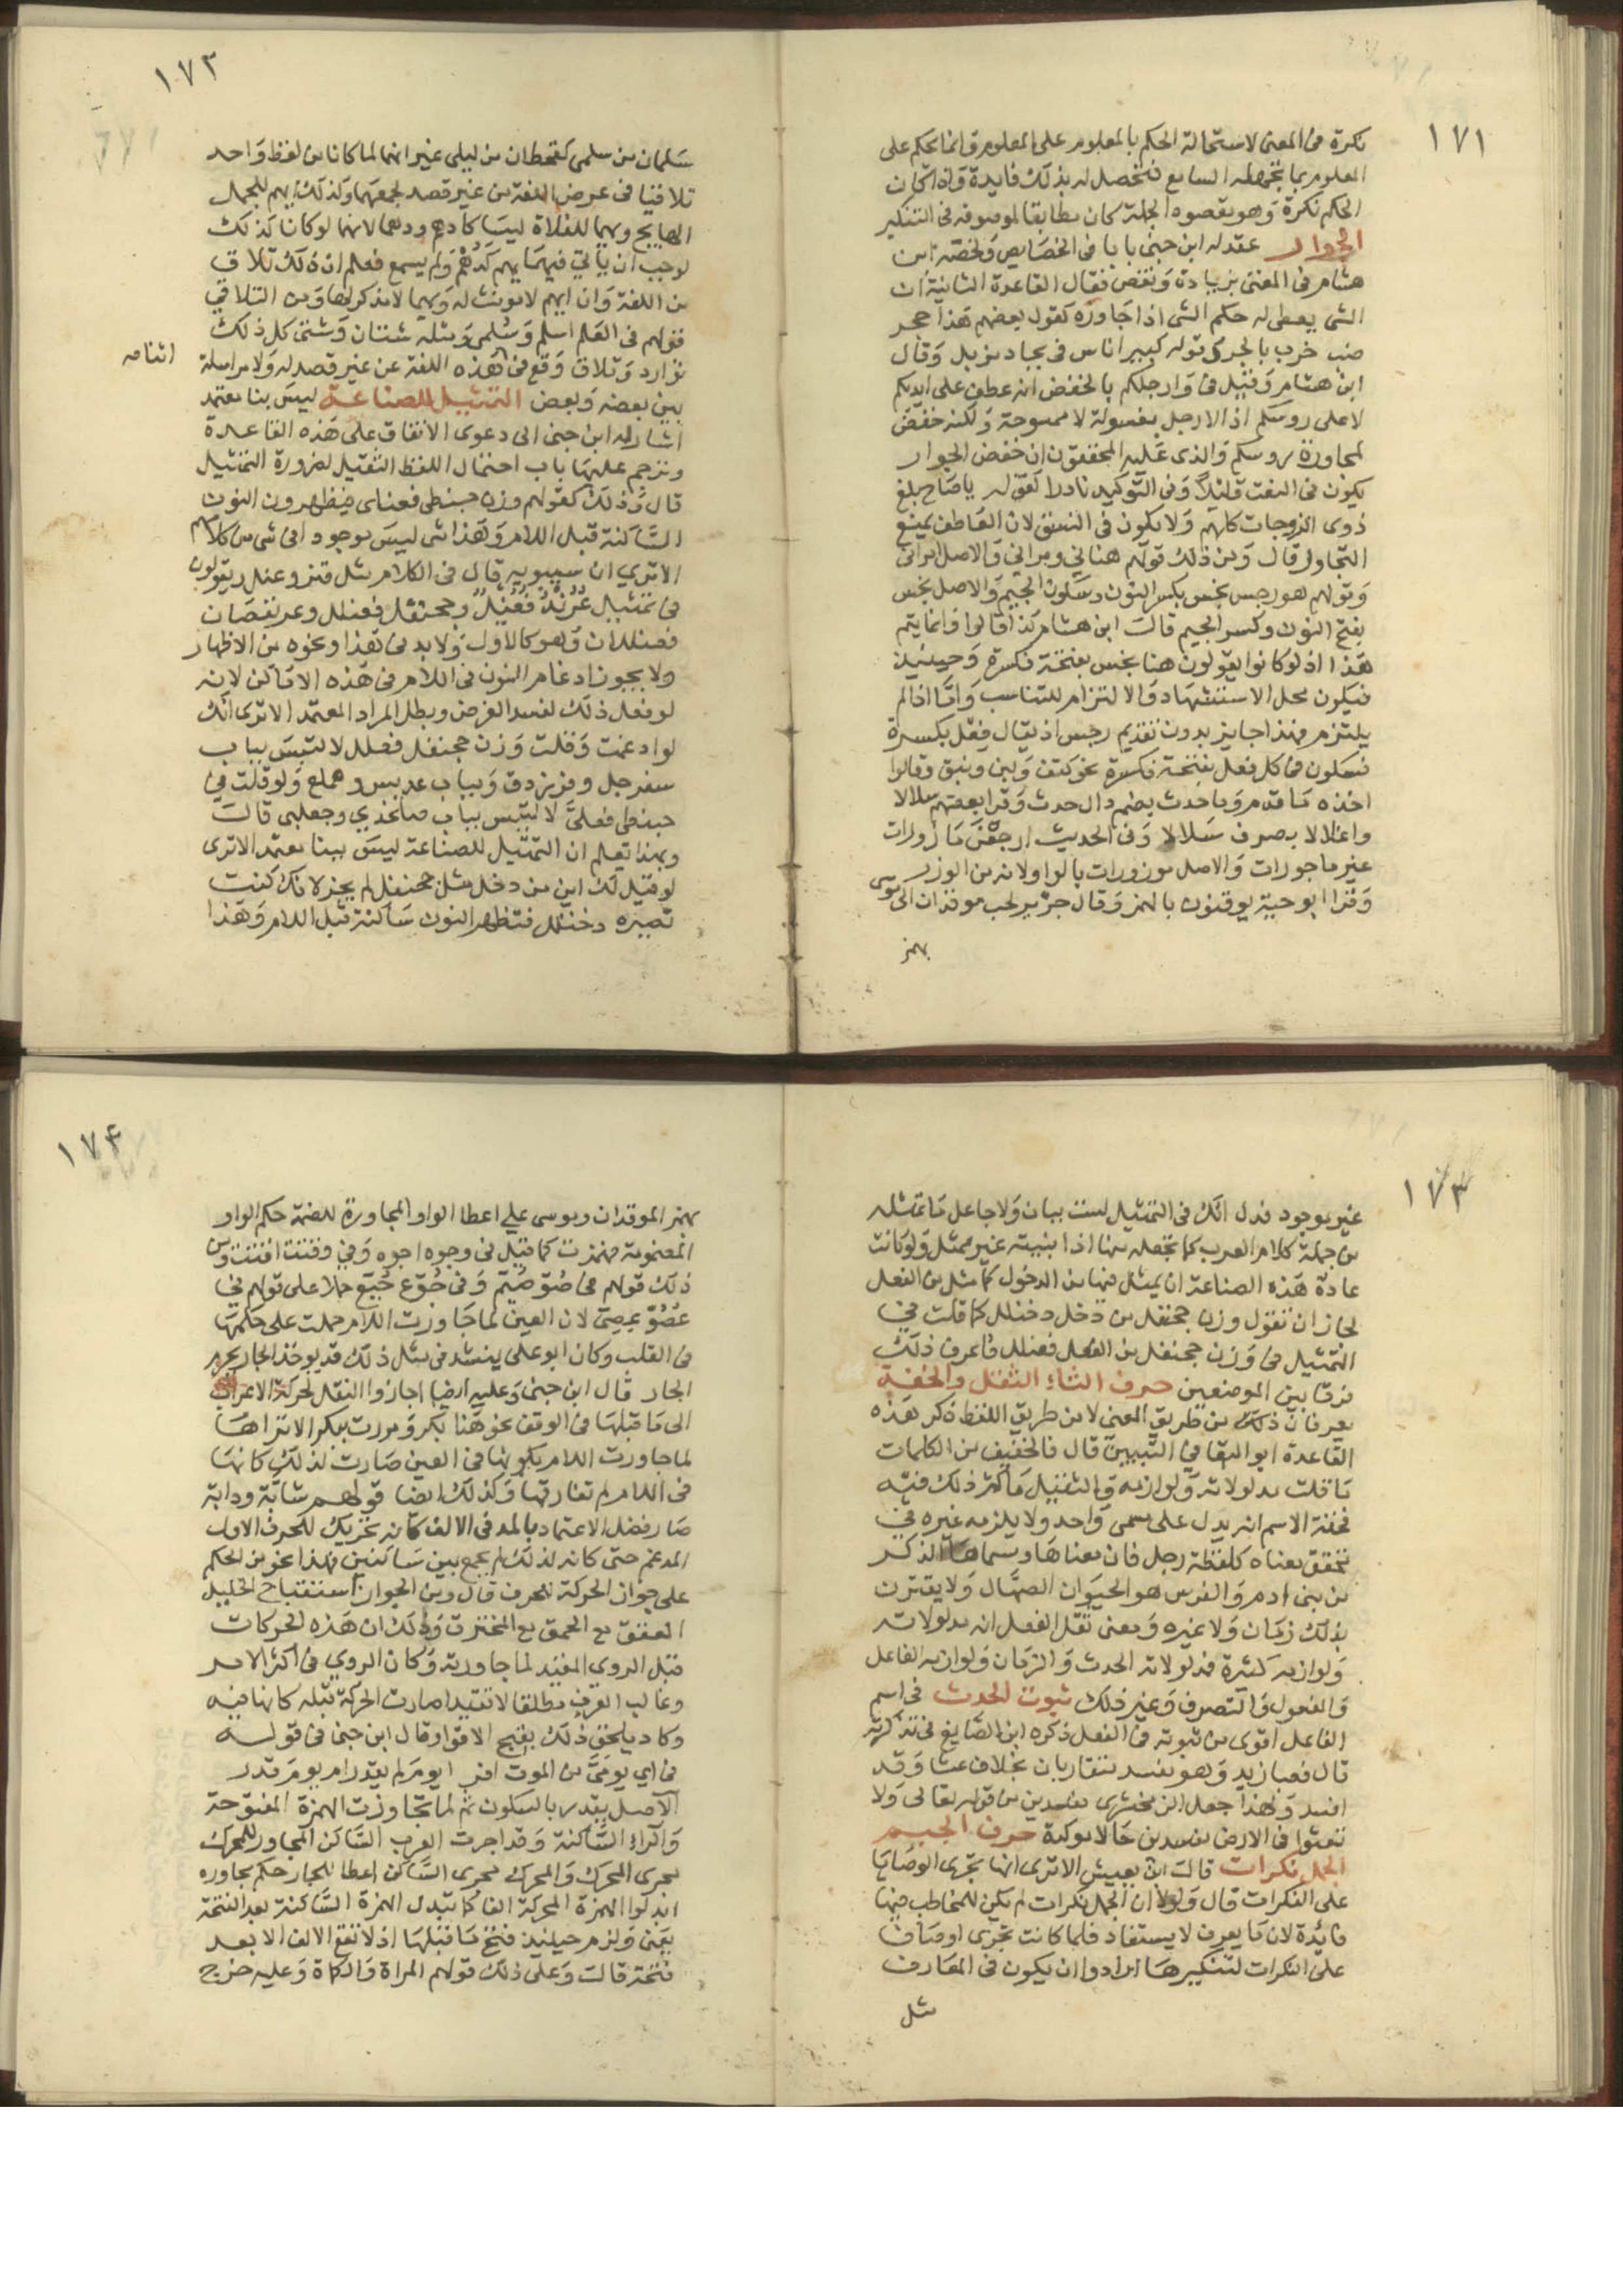 ١٧١
نكرة في المعنى لاستحالة الحكم بالمعلوم على المعلوم وانما يحكم على
المعلوم بما يجهله السامع فتحصل له بذلك فايدة واذا كان
الحكم نكرة وهو مقصود الجملة كان مطابقا لموصوفه في التنكير
الجوار عقد له ابن جني بابا في الخصايص ولخصه ابن
هشام في المغني بزيادة ونقص فقال القاعدة الثانية ان
الشي يعطى له حكم الشي اذا جاوره كقول بعضهم هذا جحر
ضب خرب بالجر وقوله كبير اناس في بجاد مزمل وقال
ابن هشام وقيل في وارجلكم بالخفض انه عطف على ايديكم
لا على روسكم اذ الارجل مغسولة لا ممسوحة ولكنه خفض
لمجاورة روسكم والذي عليه المحققون ان خفض الجوار
يكون في النعت قليلا وفي التوكيد نادرا كقوله يا صاح بلغ
ذوى الزوجات كلهم ولا يكون في النسق لان العاطف يمنع
التجاور قال ومن ذلك قولهم هناني ومراني والاصل امراني
وقولهم هو رجس نجس بكسر النون وسكون الجيم والاصل نجس
بفتح النون وكسر الجيم قالـ ابن هشام كذا قالوا وانما يتم
هذا اذ لو كانوا يقولون هنا نجس بفتحة فكسرة وحينيذ
فيكون محل الاستشهاد والالتزام للتناسب واما اذا لم
يلتزم فهذا جايز بدون تقديم رجس اذ يقال فعل بكسرة
فسكون في كل فعل بفتحة فكسرة نحو كتف ولبن ونبق وقالوا
اخذه ما قدم وما حدث بضم دال حدث وقرا بعضهم سلالا
واغلالا بصرف سلالا وفي الحديث ارجعن مازورات
غير ماجورات والاصل موزورات بالواو لانه من الوزر
وقرا ابو حية يوقنون بالهمز وقال جرير لحب موقدان الى موسى
بهمز
١٧٢
سلمان من سلمى كقحطان من ليلى غير انهما لما كانا من لفظ واحد
تلاقيا في عرض اللغة من غير قصد لجمعهما وكذلك ايهم للجمل
الهايج ويهما للفلاة ليسا كادهم ودهما لانهما لو كانا كذلك
لوجب ان ياتي فيهما يهم كدهم ولم يسمع فعلم ان ذلك تلاق
من اللغة وان ايهم لا مونث له ويهما لا مذكر لها ومن التلاقي
قولهم في العلم اسلم وسلمى ومثله شتان وشتى كل ذلك
توارد وتلاق وقع في هذه اللغة عن غير قصد له ولا مراسلة
بين بعضه وبعض التمثيل للصناعة ليس بنا معتمد
اشار له ابن جني الى دعوى الاتفاق على هذه القاعدة
وترجم عليها باب احتمال اللفظ الثقيل لضرورة التمثيل
قال وذلك كقولهم وزن حبنطي فعنلى فيظهرون النون
الساكنة قبل اللام وهذا شي ليس موجودا في شي من كلام
الا ترى ان سيبويه قال في الكلام مثل قنر وعنل ويقولون
في تمثيل عرند فعنل وجحنفل فعنلل وعرنقصان
فعنللان وهو كالاول ولا بد في هذا ونحوه من الاظهار
ولا يجوز ادغام النون في اللام في هذه الاماكن لانه
لو فعل ذلك لفسد الغرض وبطل المراد المعتمد الا ترى انك
لو ادغمت وقلت وزن جحنفل فعلل لالتبس بباب
سفرجل وفرزدق وبباب عدبس وهملع ولو قلت في
حبنطى فعلى لالتبس بباب صلخدي وجعلبى قالـ
وبهذا تعلم ان التمثيل للصناعة ليس ببنا معتمد الا ترى
لو قيل لك ابن من دخل مثل جحنفل لم يجز لانك كنت
تصيره دخنلل فتظهر النون ساكنة قبل اللام وهذا
١٧٣
غير موجود فدل انك في التمثيل لست ببان ولا جاعل ما تمثله
من جملة كلام العرب كما تجعله منها اذا بنيته غير ممثل ولو كانت
عادة هذه الصناعة ان يمثل فيها من الدخول كما مثل من الفعل
لجاز ان تقول وزن جحنفل من دخل دخنلل كما قلت في
التمثيل في وزن جحنفل من الفعل فعنلل فاعرف ذلك
فرقا بين الموضعين حرف الثاء الثقل والخفة
يعرفان ذلك من طريق المعنى لا من طريق اللفظ ذكر هذه
القاعدة ابو البقا في التبيين قال فالخفيف من الكلمات
ما قلت مدلولاته ولوازمه والثقيل ما كثر ذلك فيه
فخفة الاسم انه يدل على مسمى واحد ولا يلزمه غيره في
تحقق معناه كلفظة رجل فان معناها ومسماها الذكر
من بني ادم والفرس هو الحيوان الصهال ولا يقترن
بذلك زمان ولا غيره ومعنى ثقل الفعل ان مدلولاته
ولوازمه كثيرة فمدلولاته الحدث والزمان ولوازمه الفاعل
والمفعول والتصرف وغير ذلك ثبوت الحدث في اسم
الفاعل اقوى من ثبوته في الفعل ذكره ابن الصايغ في تذكرته
قال فعيازيد وهو مفسد متقاربان بخلاف عثا وقد
افسد ولهذا جعل الزمخشري مفسدين من قوله تعالى ولا
تعثوا في الارض مفسدين حالا موكدة حرف الجيم
الجمل نكرات قالـ ابن يعيش الا ترى انها تجرى اوصافا
على النكرات قال ولولا ان الجمل نكرات لم يكن للمخاطب فيها
فائدة لان ما يعرف لا يستفاد فلما كانت تجرى اوصافا
على النكرات لتنكيرها ارادوا ان يكون في المعارف
مثل
١٧٤
بهمز الموقدان وموسى على اعطا الواو المجاورة للضمة حكم الواو
المضمومة فهمزت كما قيل في وجوه اجوه وفي وقتت اقتت ومن
ذلك قولهم في صوم صيم وفي جوع جيع حملا على قولهم في
عصو عصي لان العين لما جاورت اللام حملت على حكمها
في القلب وكان ابو على ينشد في مثل ذلك قد يوخذ الجار بجرم
الجار قال ابن جني وعليه ايضا اجازوا النقل لحركة الاعراب
الى ما قبلها في الوقف نحو هذا بكر ومررت ببكر الا تراها
لما جاورت اللام بكونها في العين صارت لذلك كانها
في اللام لم تفارقها وكذلك ايضا قولهم شابة ودابة
صار فضل الاعتماد بالمد في الالف كانه تحريك للحرف الاول
المدغم حتى كانه لذلك لم يجمع بين ساكنين فهذا نحو من الحكم
على جوار الحركة للحرف قال ومن الجوار استقباح الخليل
العقق مع الحمق مع المخترق وذلك ان هذه الحركات
قبل الروي المقيد لما جاورته وكان الروي في اكثر الامر
وغالب العرف مطلقا لا مقيدا صارت الحركة قبله كانها فيه
وكاد يلحق ذلك بقبح الاقوا وقال ابن جني في قوله
في اي يومى من الموت افر ايوم لم يقدر ام يوم قدر
الاصل يقدر بالسكون ثم لما تجاورت الهمزة المفتوحة
والراء الساكنة وقد اجرت العرب الساكن المجاور للمحرك
مجرى المحرك والمحرك مجرى الساكن اعطا للجار حكم مجاوره
ابدلوا الهمزة المحركة الفا كما تبدل الهمزة الساكنة بعد الفتحة
يعني ولزم حينيذ فتح ما قبلها اذ لا تقع الالف الا بعد
فتحة قالـ وعلى ذلك قولهم المراة والكماة وعليه خرج